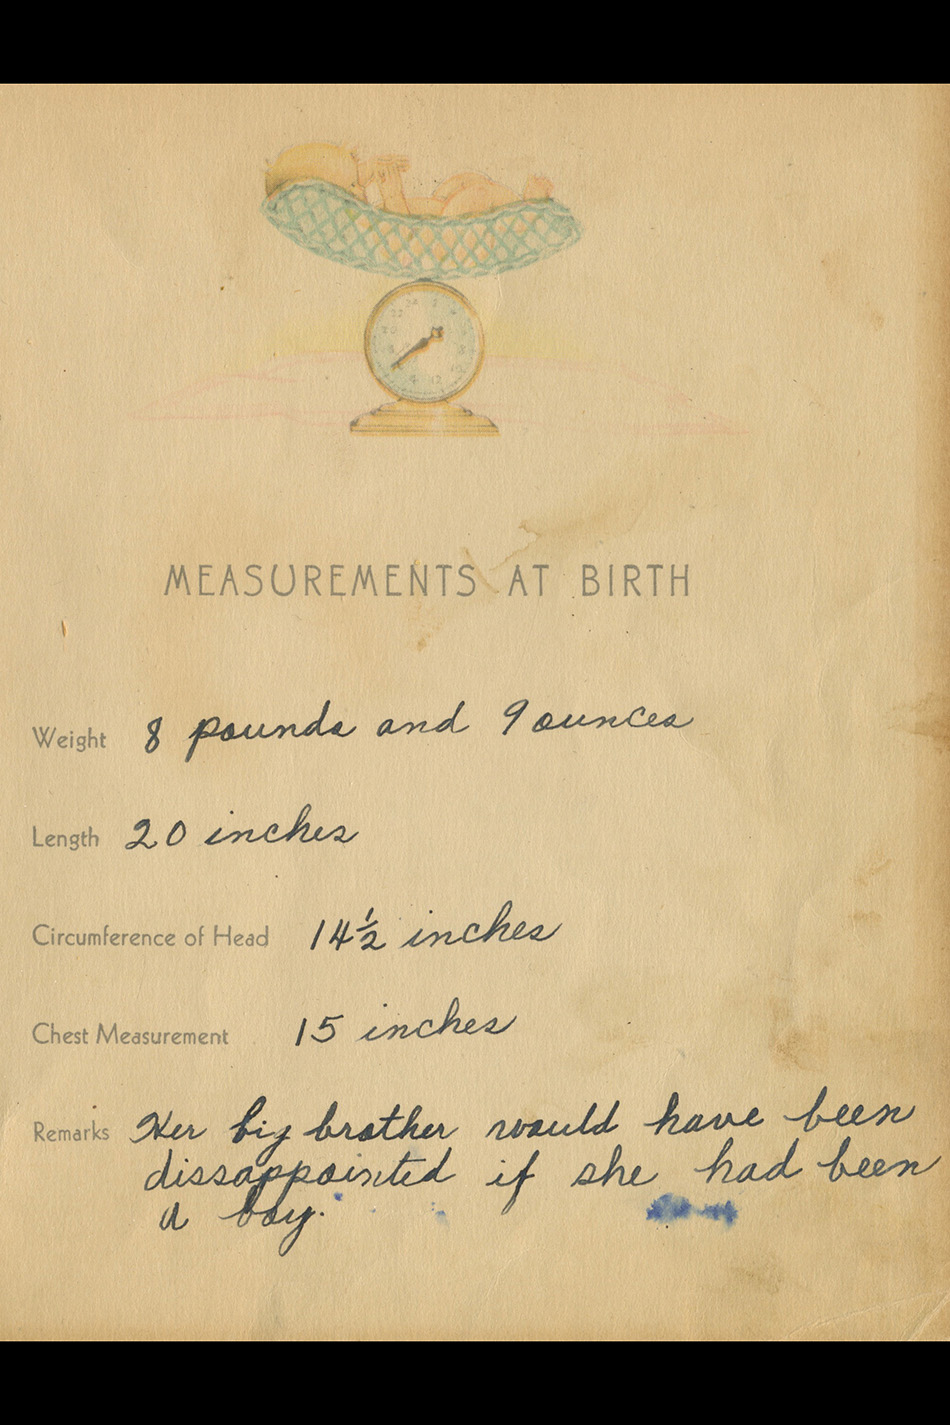 MEASUREMENTS AT BIRTH
Weight 8 pounds and 9 ounces
Length 20 inches
Circumference of Head 14½ inches
Chest Measurement 15 inches
Remarks Her big brother would have been
dissappointed if she had been
a boy.